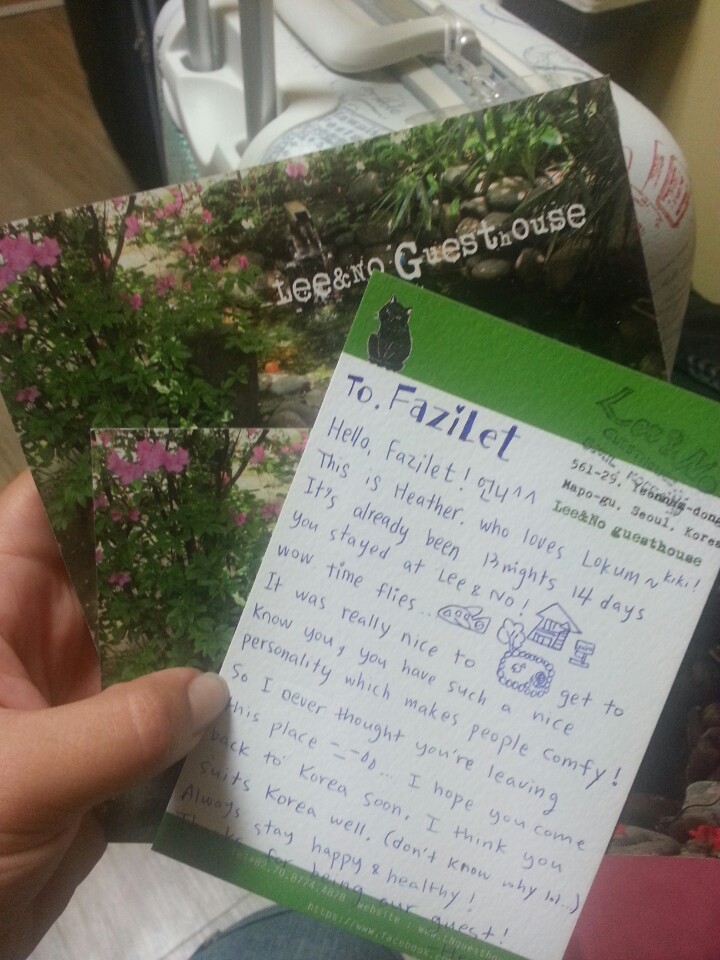 Lee&No Guesthouse
Lee& No
561-29,
Mapo-gu, Seoul, Korea
Lee&No guesthouse
To. Fazilet
Hello, Fazilet! 안녕^^
This is Heather. who loves Lokum~ kiki!
It's already been 13nights 14 days
you stayed at Lee & No!
wow time flies..
It was really nice to get to
know you, you have such a nice
personality which makes people comfy!
So I never thought you're leaving
this place
I hope you come
back to Korea soon. I think you
suits Korea well. (don't know why lol...)
Always stay happy & healthy!
Thanks for being our guest!
website :
https://www.facebook.